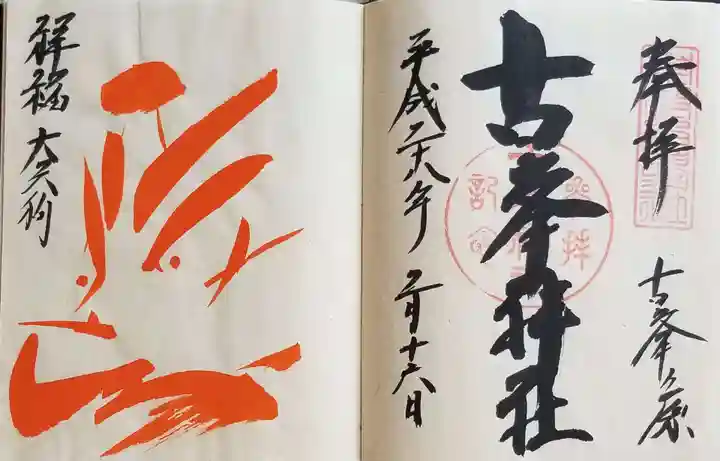 奉拝
古峯ヶ原
古峯神社
参拝記念
平成二十八年 二月十六日
祥福 大天狗